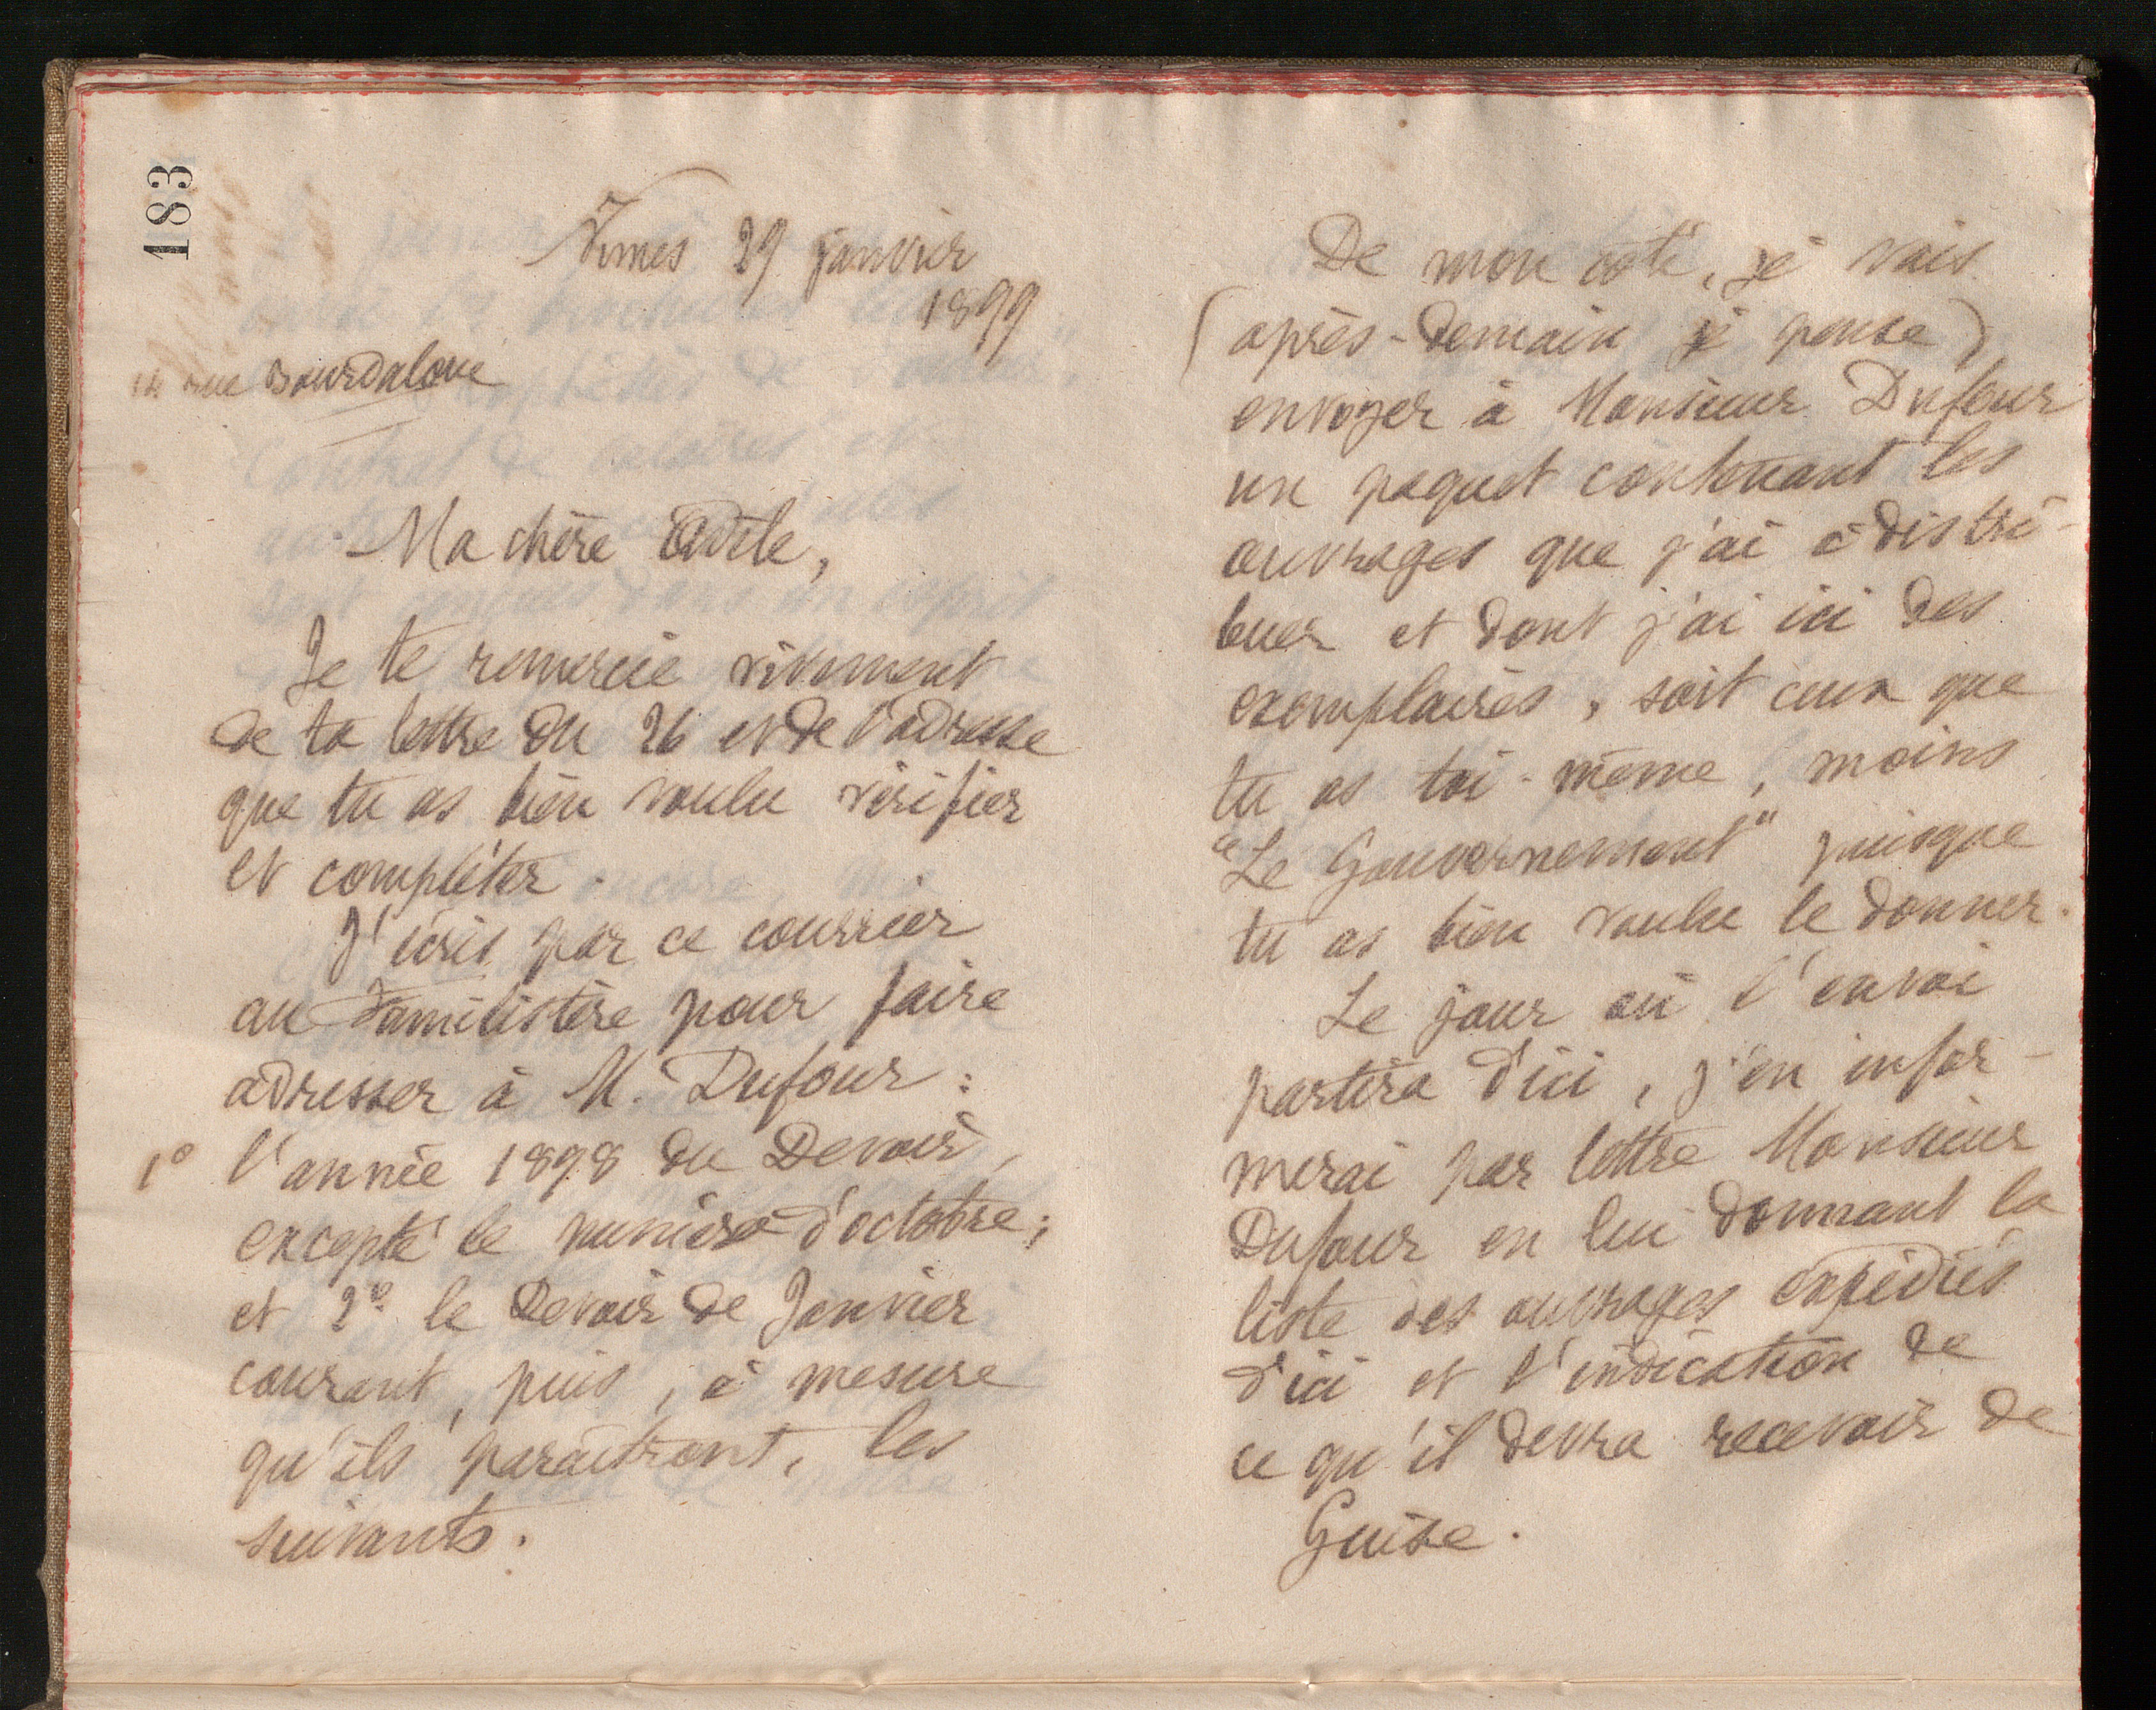 183
Nimes 29 janvier
1899
14 rue Bourdaloue
Ma chère Odile,
Je te remercie vivement
de ta lettre du 26 et de l'adresse
que tu as bien voulu vérifier
et compléter.
J'écris par ce courrier
au Familistère pour faire
adresser à M. Dufour :
1º l'année 1898 du Devoir,
excepté le numéro d'octobre ;
et 2º le Devoir de Janvier
courant, puis, à mesure
qu'ils paraîtront, les
suivants.
De mon côté, je vais
(après-demain je pense)
envoyer à Monsieur Dufour
un paquet contenant les
ouvrages que j'ai à distri-
buer et dont j'ai ici des
exemplaires, soit ceux que
tu as toi-même, moins
"Le Gouvernement" puisque
tu as bien voulu le donner.
Le jour où l'envoi
partira d'ici, j'en infor-
merai par lettre Monsieur
Dufour en lui donnant la
liste des ouvrages expédiés
d'ici et l'indication de
ce qu'il devra recevoir de
Guise.